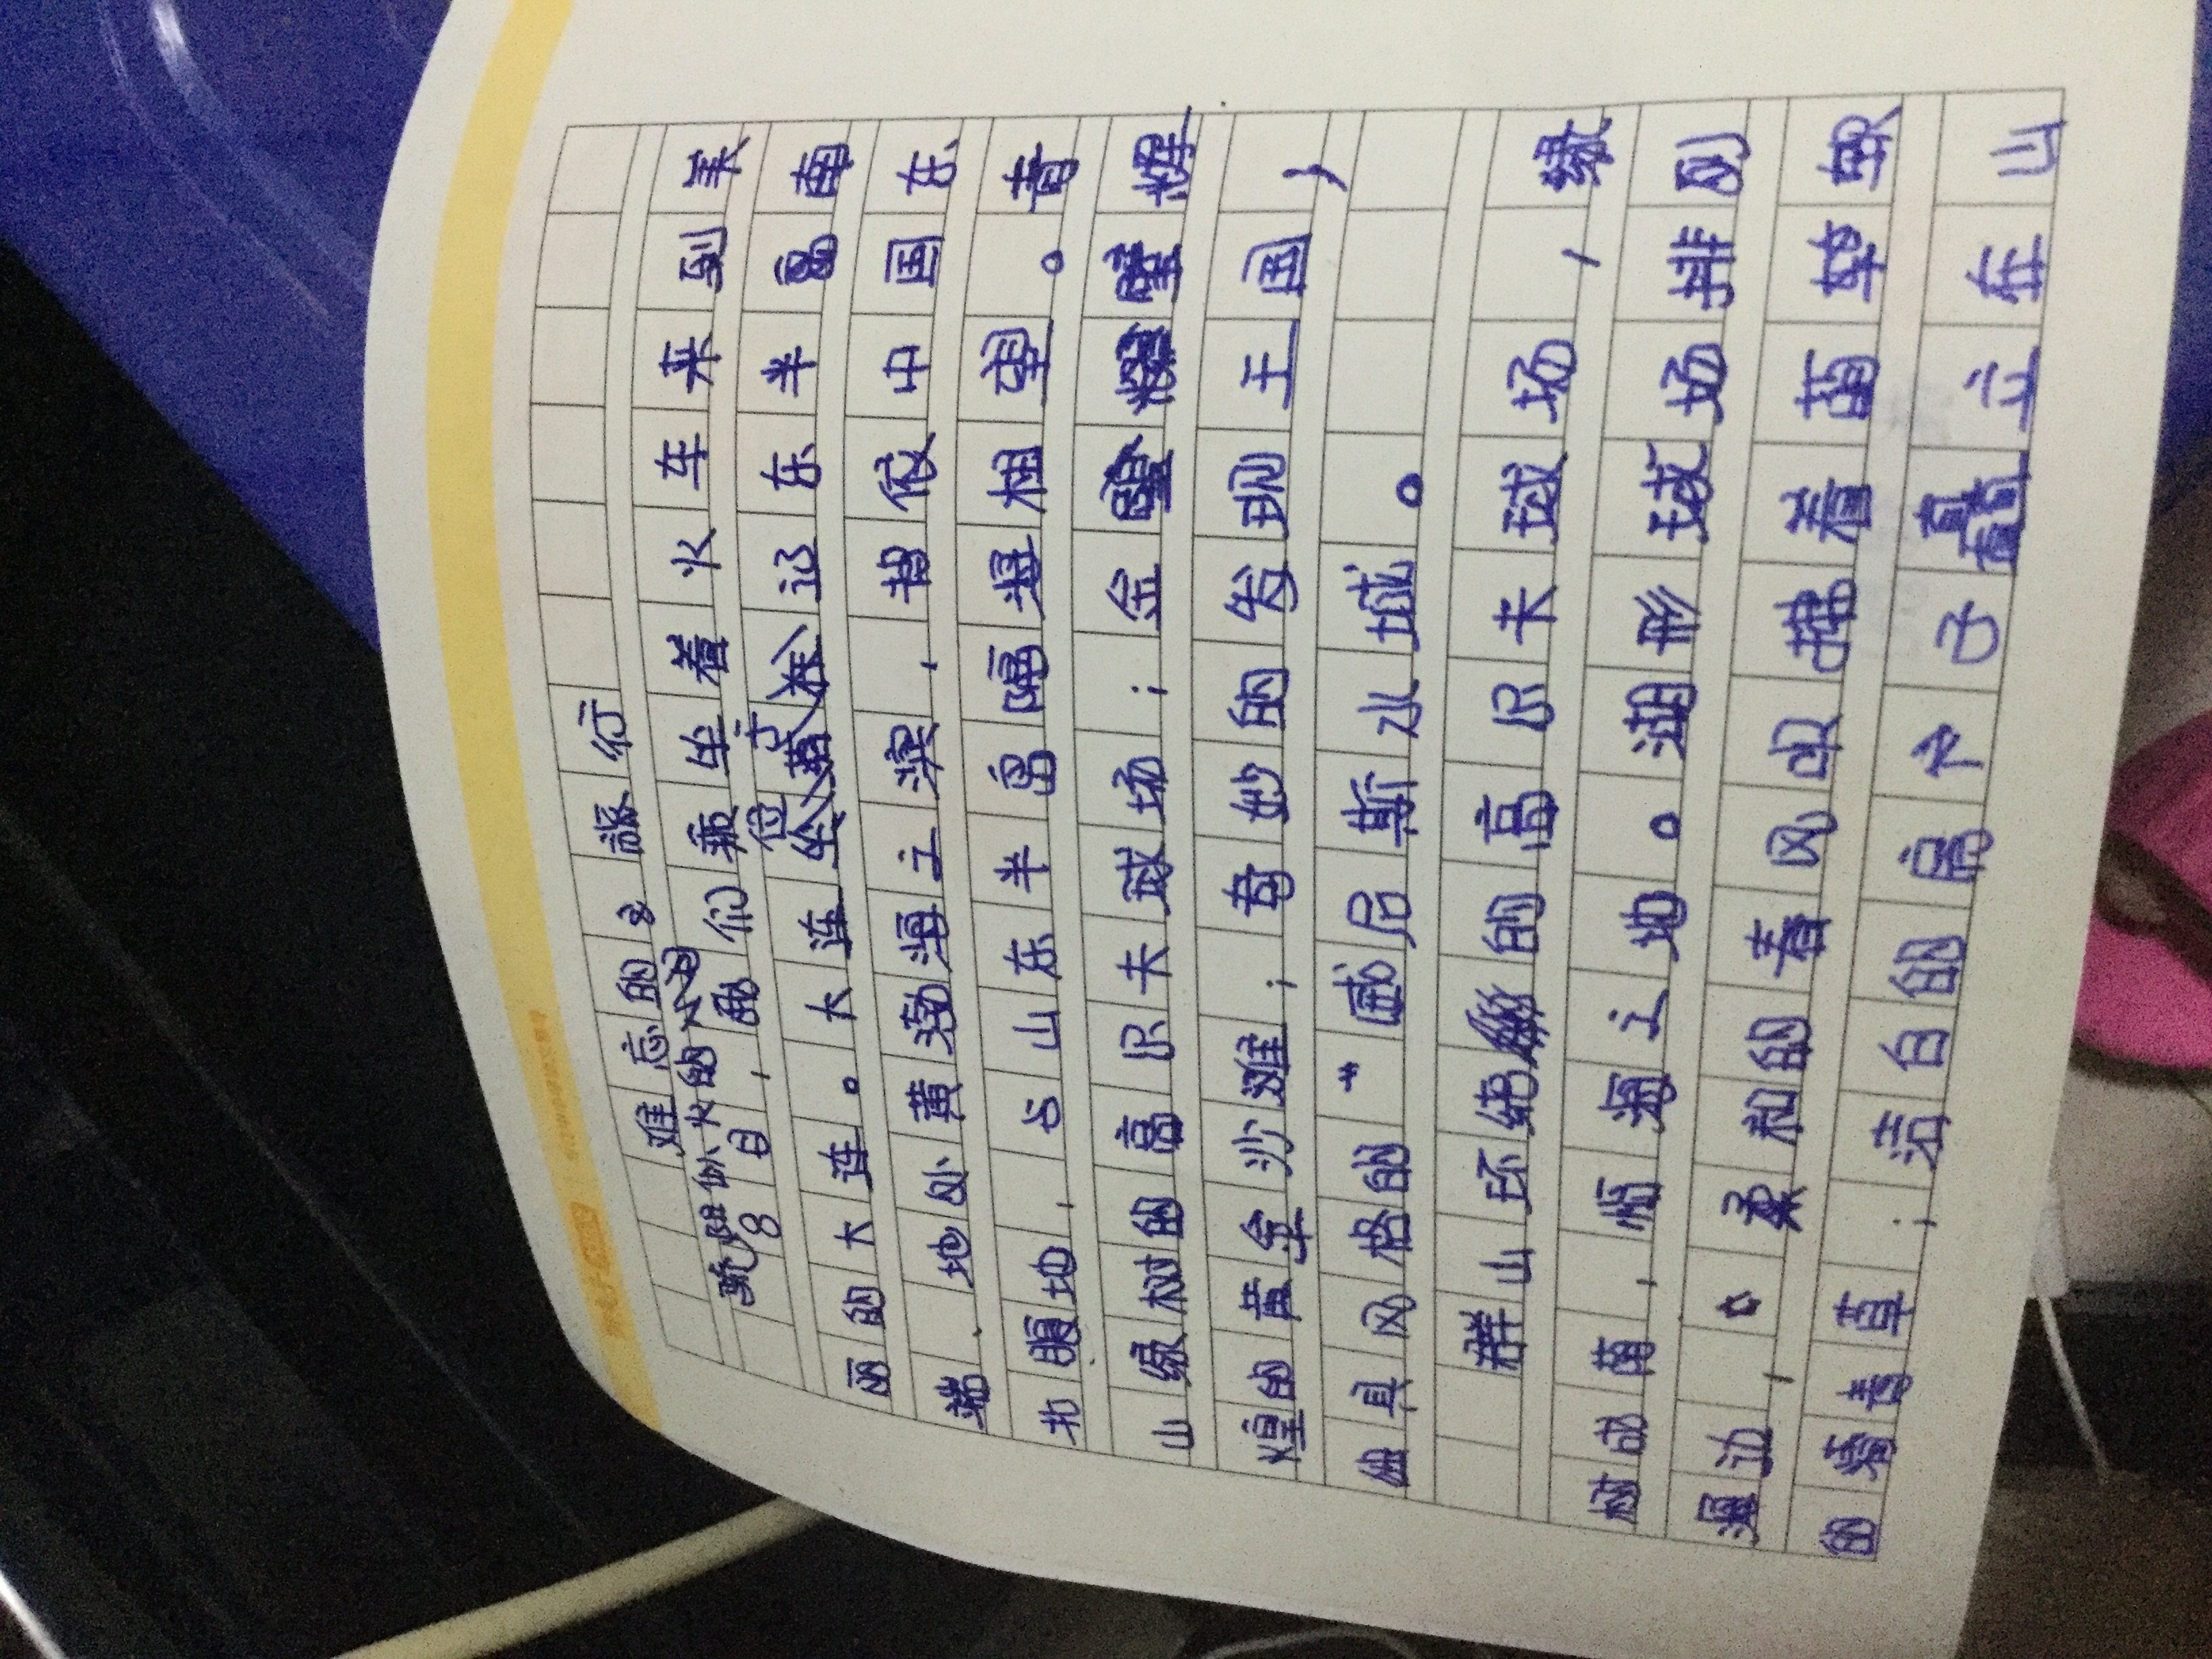 难忘的旅行
似火的
8日,我们乘坐着火车来到美
丽的大连。大连位于辽东半岛南
端、地处黄渤海之滨,背依中国东
北腹地,与山东半岛隔海相望。青
山绿树的高尔夫球场;金碧辉
煌的黄金沙滩;奇妙的发现王国,
具风格的“威尼斯水城。
群山环绕的高尔夫球场,绿
树成荫,临海之地。湖形球场排列
海边,柔和的春风吹拂着
的青草;洁白的高个子矗立在山